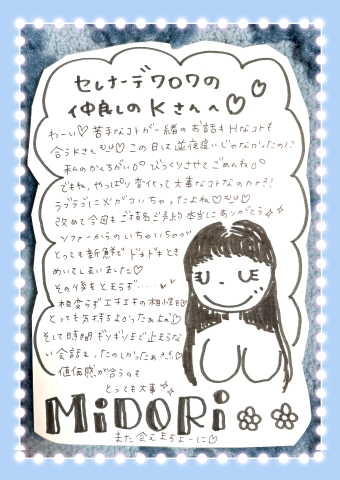 セレナーデワロワの
仲良しのKさんへ♡
わーい♡苦手なコトが一緒のお話もHなコトも
合うKさん この日は逆夜這いじゃなかったのに
私のかんちがい びっくりさせてごめんね
でもね、やっぱり変化って大事なコトなのカナ!
ラブラブに火がついちゃったよね♡
改めて今回もご指名ご予約本当にありがとう
ソファーからのいちゃいちゃが
とっても新鮮でドキドキとき
めいてしまいました♡
その後もとまらず……
相変らずエチエチの相性も♡
とっても気持ちよかったぁよね♡
そして時間ギリギリまで止まらな
い会話も、たのしかったぁ
価値感が合うのも
とっても大事
MiDORi
また会えますよーに♡